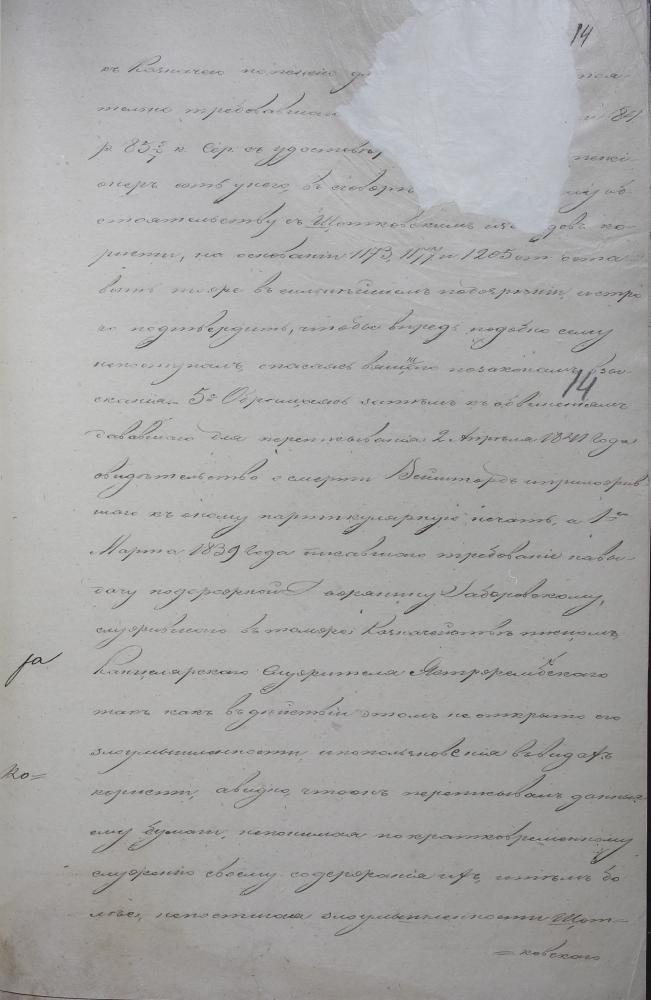 14
къ Казначею
тельно требовавшаго 184
р 85 5/7 к. Сер. съ
онеръ отъ
стоятельству съ Щотковскимъ изъ видовъ ко-
рысти, на основаніи 1173, 1177 и 1205 ст оста
вить тоже въ сильнѣйшемъ подозрѣніи, и стро
го подтвердить, чтобы впредь подобно сему
непоступалъ, опасаясь вящшаго позаконамъ взы-
сканія. 5е Обращаясь затѣмъ къ обвиненіямъ
14
дававшаго для переписыванія 2 Апрѣля 1841 года
свидѣтельство о смерти и приложив-
шаго къ оному партикулярную печать, а 1го
Марта 1839 года писавшаго требованіе на вы-
дачу подорожной Дворянину Заборовскому,
служившаго въ томже Казначействѣ писцомъ,
ja
Канцелярскаго Служителя Ястржембскаго
такъ какъ въ дѣйствіи этомъ не открыто его
злоумышленности и поползновенія въ видахъ
ко=
корысти, а видно, что онъ переписывалъ данныя
ему бумаги, непонимая по кратковременному
служенію своему содержанія ихъ, и тѣмъ бо
лѣе, непостигая злоумышленности Щот=
= ковскаго